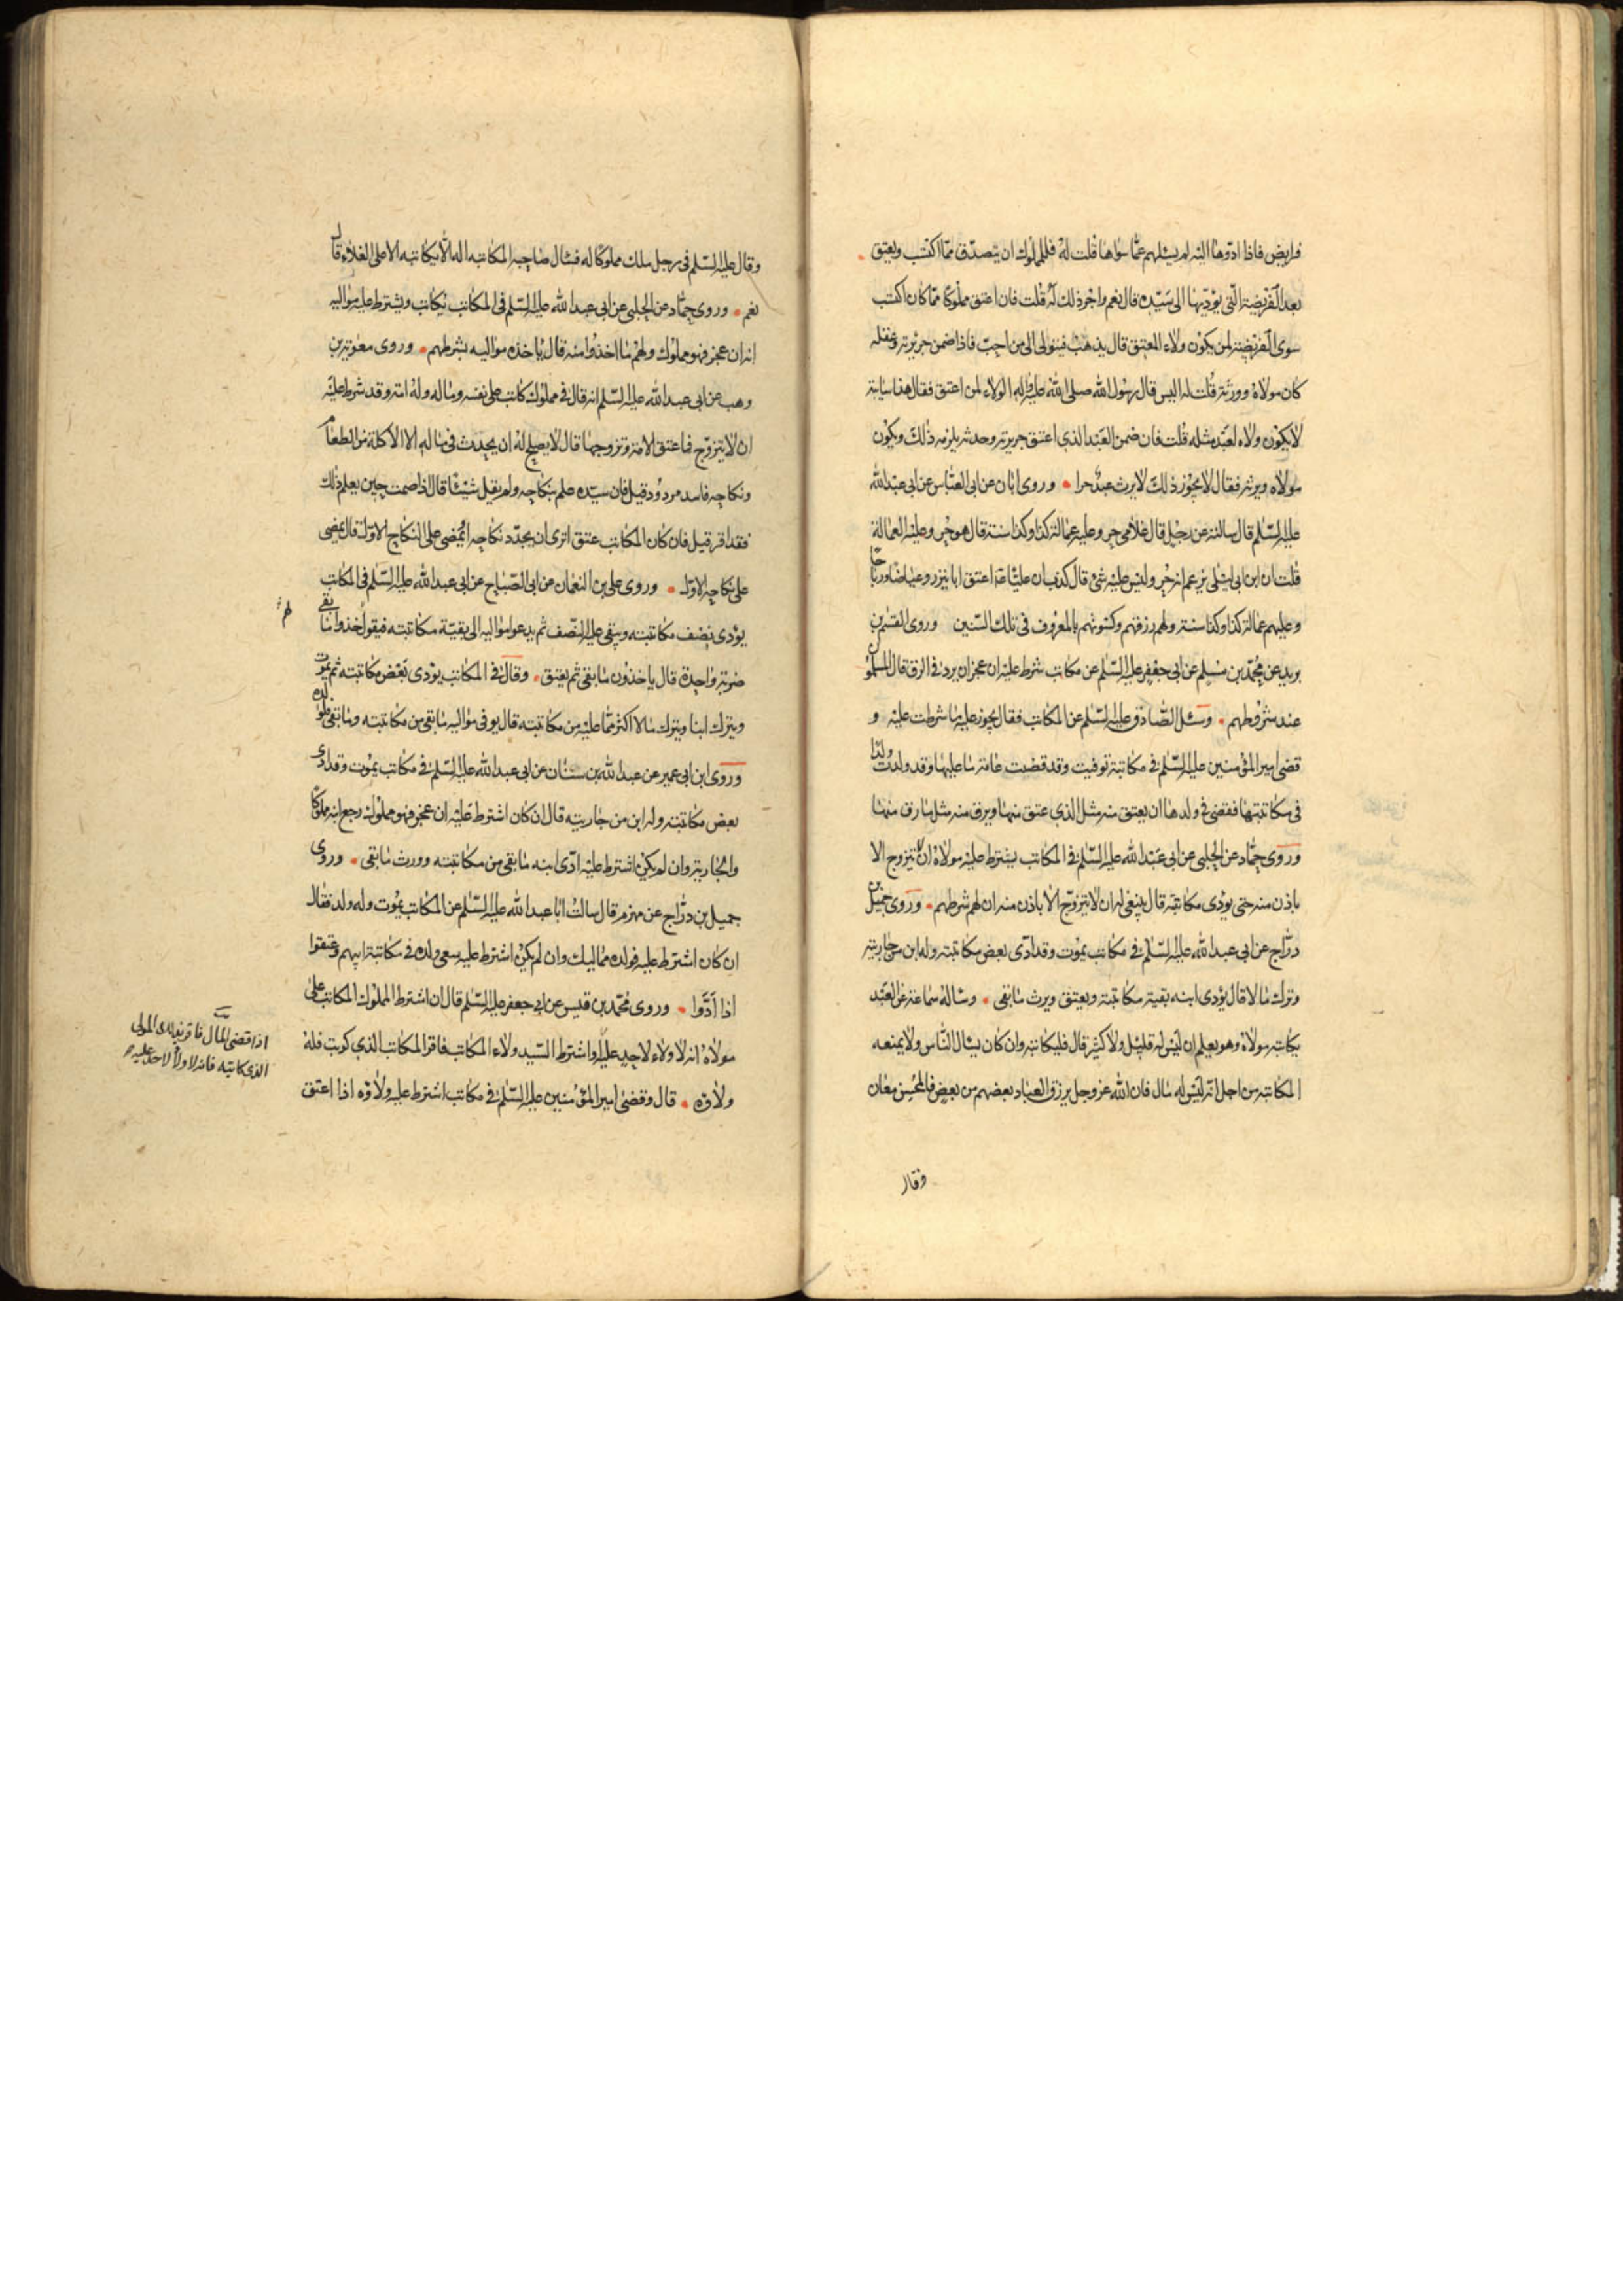 فرايض فاذا ادّوها اليه لم يسئلهم عمّا سواها قلت له فللملوك ان يتصدّق ممّا اكتسب ويعتق
بعد الفريضة الّتي يؤدّيها الى سيّده قال نعم واجر ذلك له قلت فان اعتق مملوكا ممّا كان اكتسب
سوى الفريضة لمن يكون ولاء المعتق قال يذهب فيتولى الى من احبّ فاذا ضمن جريرته وعقله
كان مولاه وورثه قلت له اليس قال رسول الله صلى الله عليه واله الولاء لمن اعتق فقال هذا سايبة
لا يكون ولاه لعبد مثله قلت فان ضمن العبد الذي اعتق جريرته وحدثه يلزمه ذلك ويكون
مولاه ويرثه فقال لا يجوز ذلك لا يرث عبد حرا وروى ابان عن ابي العبّاس عن ابي عبد الله
عليه السّلم قال سالته عن رجل قال غلامي حر وعليه عمالة كذا وكذا سنة قال هو حر وعليه العمالة
قلت ان ابن ابي ليلى يزعم انه حر وليس عليه شئ قال كذب ان عليّا ع اعتق ابا نيزر وعياضا ورباحا
وعليهم عمالة كذا وكذا سنة ولهم رزقهم وكسوتهم بالمعروف في تلك السّنين وروى القسم بن
بريد عن محمّد بن مسلم عن ابي جعفر عليه السّلم عن مكاتب شرط عليه ان عجز ان يرد في الرق قال المسلمون
عند شروطهم وسئل الصّادق عليه السّلم عن المكاتب فقال يجوز عليه ما شرطت عليه و
قضى امير المؤمنين عليه السّلم في مكاتبة توفيت وقد قضت عامة ما عليها وقد ولدت ولدا
في مكاتبتها فقضى في ولدها ان يعتق منه مثل الذي عتق منها ويرق منه مثل ما رق منها
وروى حمّاد عن الحلبي عن ابي عبد الله عليه السّلم في المكاتب يشترط عليه مولاه ان لا يتزوج الا
باذن منه حتى يؤدى مكاتبته قال ينبغي له ان لا يتزوّج الا باذن منه ان لهم شرطهم وروى جميل بن
درّاج عن ابي عبد الله عليه السّلم في مكاتب يموت وقد ادّى بعض مكاتبته وله ابن من جاريته
وترك مالا قال يؤدى ابنه بقية مكاتبته ويعتق ويرث ما بقى وساله سماعة عن العبد
يكاتبه مولاه وهو يعلم ان ليس له قليل ولا كثير قال فليكاتبه وان كان يسال النّاس ولا يمنعه
المكاتبة من اجل انّه ليس له مال فان الله عز وجل يرزق العباد بعضهم من بعض فالمحسن معان
وقال
وقال عليه السّلم في رجل ملك مملوكا له فسال صاحبه المكاتبة اله الّا يكاتبه الا على الغلاء قال
نعم وروى حمّاد عن الحلبي عن ابي عبد الله عليه السّلم في المكاتب يكاتب ويشترط عليه مواليه
انه ان عجز فهو مملوك ولهم ما اخذوا منه قال ياخذه مواليه بشرطهم وروى معوية بن
وهب عن ابي عبد الله عليه السّلم انه قال في مملوك كاتب على نفسه وماله وله امة وقد شرط عليه
ان لا يتزوّج فاعتق الامة وتزوجها قال لا يصلح له ان يحدث في ماله الا الاكلة من الطعام
ونكاحه فاسد مردود قيل فان سيّده علم بنكاحه ولم يقل شيئا قال اذا صمت حين يعلم ذلك
فقد اقر قيل فان كان المكاتب عتق اترى ان يجدّد نكاحه او يمضى على النكاح الاول قال يمضى
على نكاحه الاول وروى على بن النعمان عن ابي الصّباح عن ابي عبد الله عليه السّلم في المكاتب
يؤدى نصف مكاتبته وبقى عليه النّصف ثم يدعو مواليه الى بقيّة مكاتبته فيقول خذوا ما بقى
ضربة واحدة قال ياخذون ما بقى ثم يعتق وقال في المكاتب يؤدى بعض مكاتبته ثم يموت
ويترك ابنا ويترك مالا اكثر ممّا عليه من مكاتبته قال يوفى مواليه ما بقى من مكاتبته وما بقى فلولده
وروى ابن ابي عمير عن عبد الله بن سنان عن ابي عبد الله عليه السّلم في مكاتب يموت وقد ادى
بعض مكاتبته وله ابن من جاريته قال ان كان اشترط عليه ان عجز فهو مملوك رجع ابنه مملوكا
والجارية وان لم يكن اشترط عليه ادّى ابنه ما بقى من مكاتبته وورث ما بقى وروى
جميل بن درّاج عن مهزم قال سالت ابا عبد الله عليه السّلم عن المكاتب يموت وله ولد فقال
ان كان اشترط عليه فولده مماليك وان لم يكن اشترط عليه سعى ولده في مكاتبة ابيهم وعتقوا
اذا ادّوا وروى محمّد بن قيس عن ابي جعفر عليه السّلم قال ان اشترط المملوك المكاتب على
مولاه انه لا ولاء لاحد عليه واشترط السّيد ولاء المكاتب فاقر المكاتب الذي كوتب فله
ولاؤه قال وقضى امير المؤمنين عليه السّلم في مكاتب اشترط عليه ولاؤه اذا اعتق
لهم
اذا قضى المال فاقر بذلك المولى
الذي كاتبه فانه لا ولاء لاحد عليه